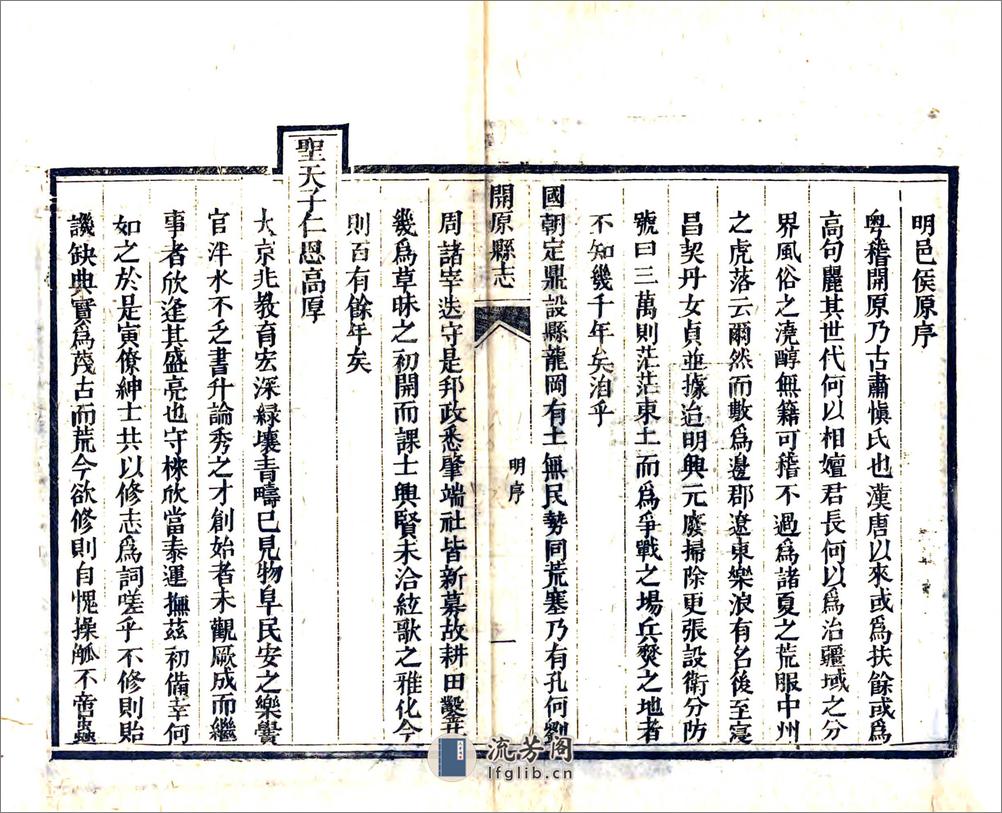 明邑侯原序
粤稽開原乃古肅愼氏也漢唐以來或爲扶餘或爲
高句麗其世代何以相嬗君長何以爲治疆域之分
界風俗之澆醇無籍可稽不過爲諸夏之荒服中州
之虎落云爾然而數爲邊郡遼東樂浪有名後至
昌契丹女貞並據迨明興元廢掃除更張設衛分防
號曰三萬則茫茫東土而爲爭戰之場兵燹之地者
不知幾千年矣洎乎
國朝定鼎設縣龍岡有土無民勢同荒塞乃有孔何劉
開原縣志
明序
一
周諸宰迭守是邦政悉肇端社皆新募故耕田鑿井
幾爲草昧之初開而課士興賢未洽絃歌之雅化今
則百有餘年矣
聖天子仁恩高厚
大京兆教育宏深緑壤青疇已見物阜民安之樂黌
官泮水不乏書升論秀之才創始者未觀厥成而繼
事者欣逢其盛亮也守樸欣當泰運撫茲初備幸何
如之於是寅僚紳士共以修志爲詞嗟乎不修則貽
譏缺典實爲蔑古而荒今欲修則自愧操觚不啻蟲
流芳阁
lfglib.cn